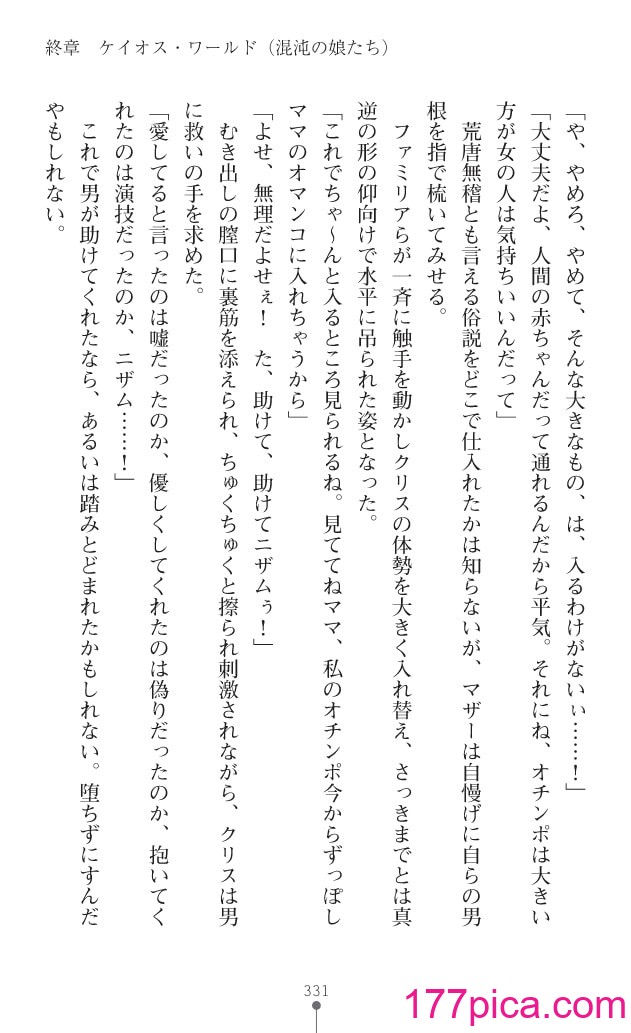 終章　ケイオス・ワールド（混沌の娘たち）
「や、やめろ、やめて、そんな大きなもの、は、入るわけがないぃ……！」
「大丈夫だよ、人間の赤ちゃんだって通れるんだから平気。それにね、オチンポは大きい
方が女の人は気持ちいいんだって」
荒唐無稽とも言える俗説をどこで仕入れたかは知らないが、マザーは自慢げに自らの男
根を指で梳いてみせる。
ファミリアらが一斉に触手を動かしクリスの体勢を大きく入れ替え、さっきまでとは真
逆の形の仰向けで水平に吊られた姿となった。
「これでちゃ〜んと入るところ見られるね。見ててねママ、私のオチンポ今からずっぽし
ママのオマンコに入れちゃうから」
「よせ、無理だよせぇ！　た、助けて、助けてニザムぅ！」
むき出しの膣口に裏筋を添えられ、ちゅくちゅくと擦られ刺激されながら、クリスは男
に救いの手を求めた。
「愛してると言ったのは嘘だったのか、優しくしてくれたのは偽りだったのか、抱いてく
れたのは演技だったのか、ニザム……！」
これで男が助けてくれたなら、あるいは踏みとどまれたかもしれない。堕ちずにすんだ
やもしれない。
331
177pica.com